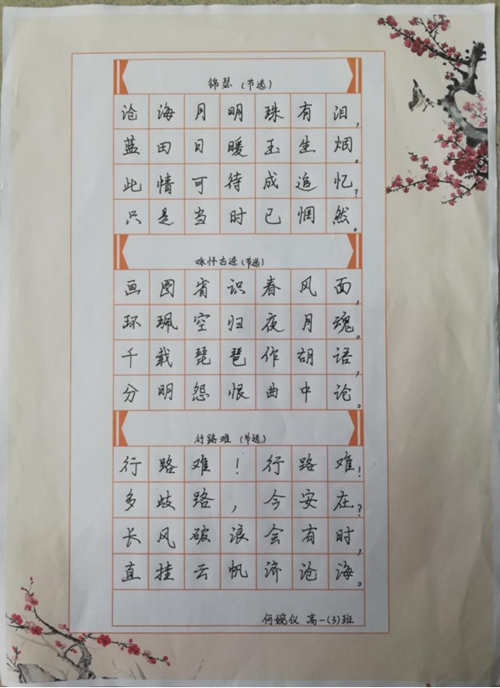 锦瑟（节选）
沧海月明珠有泪，
蓝田日暖玉生烟。
此情可待成追忆？
只是当时已惘然。
咏怀古迹（节选）
画图省识春风面，
环珮空归夜月魂。
千载琵琶作胡语，
分明怨恨曲中论。
行路难（节选）
行路难！行路难！
多歧路，今安在？
长风破浪会有时，
直挂云帆济沧海。
何婉仪 高一（3）班